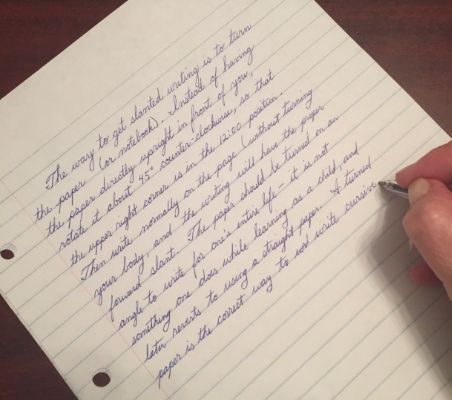 The way to get slanted writing is to turn
the paper (or notebook). Instead of having
the paper directly upright in front of you,
rotate it about 45° counter-clockwise, so that
the upper right corner is in the 12:00 position.
Then write normally on the page (without turning
your body), and the writing will have the proper
forward slant. The paper should be turned on an
angle to write for one's entire life - it is not
something one does while learning as a child, and
later reverts to using a straight paper. A turned
paper is the correct way to write cursive